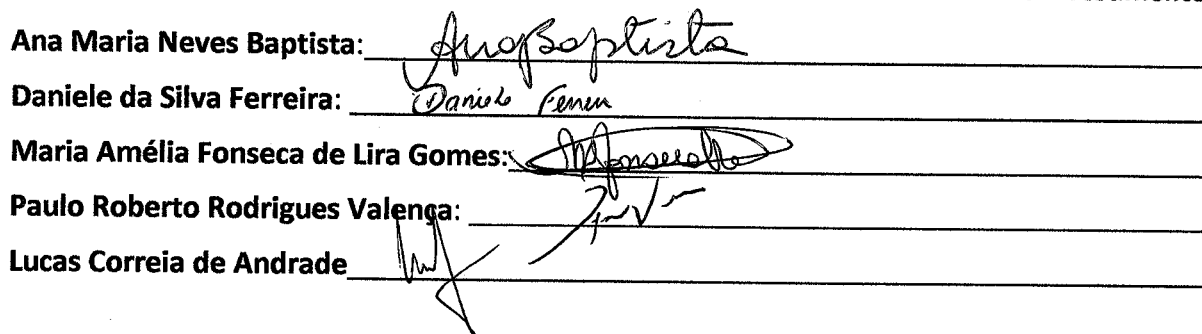 Ana Maria Neves Baptista: AnaBaptista
Daniele da Silva Ferreira: Daniele Ferreira
Maria Amélia Fonseca de Lira Gomes:
Paulo Roberto Rodrigues Valença:
Lucas Correia de Andrade